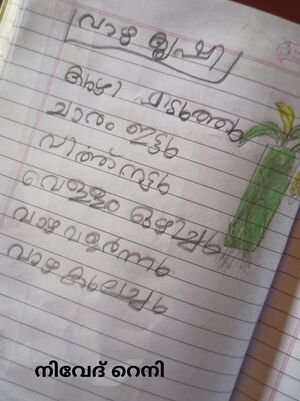 വാഴ കൃഷി
കുഴി എടുത്തു
ചാരം ഇട്ടു
വിത്ത് നട്ടു
വെള്ളം ഒഴിച്ചു
വാഴ വളർന്നു
വാഴ കുലച്ചു
നിവേദ് റെനി